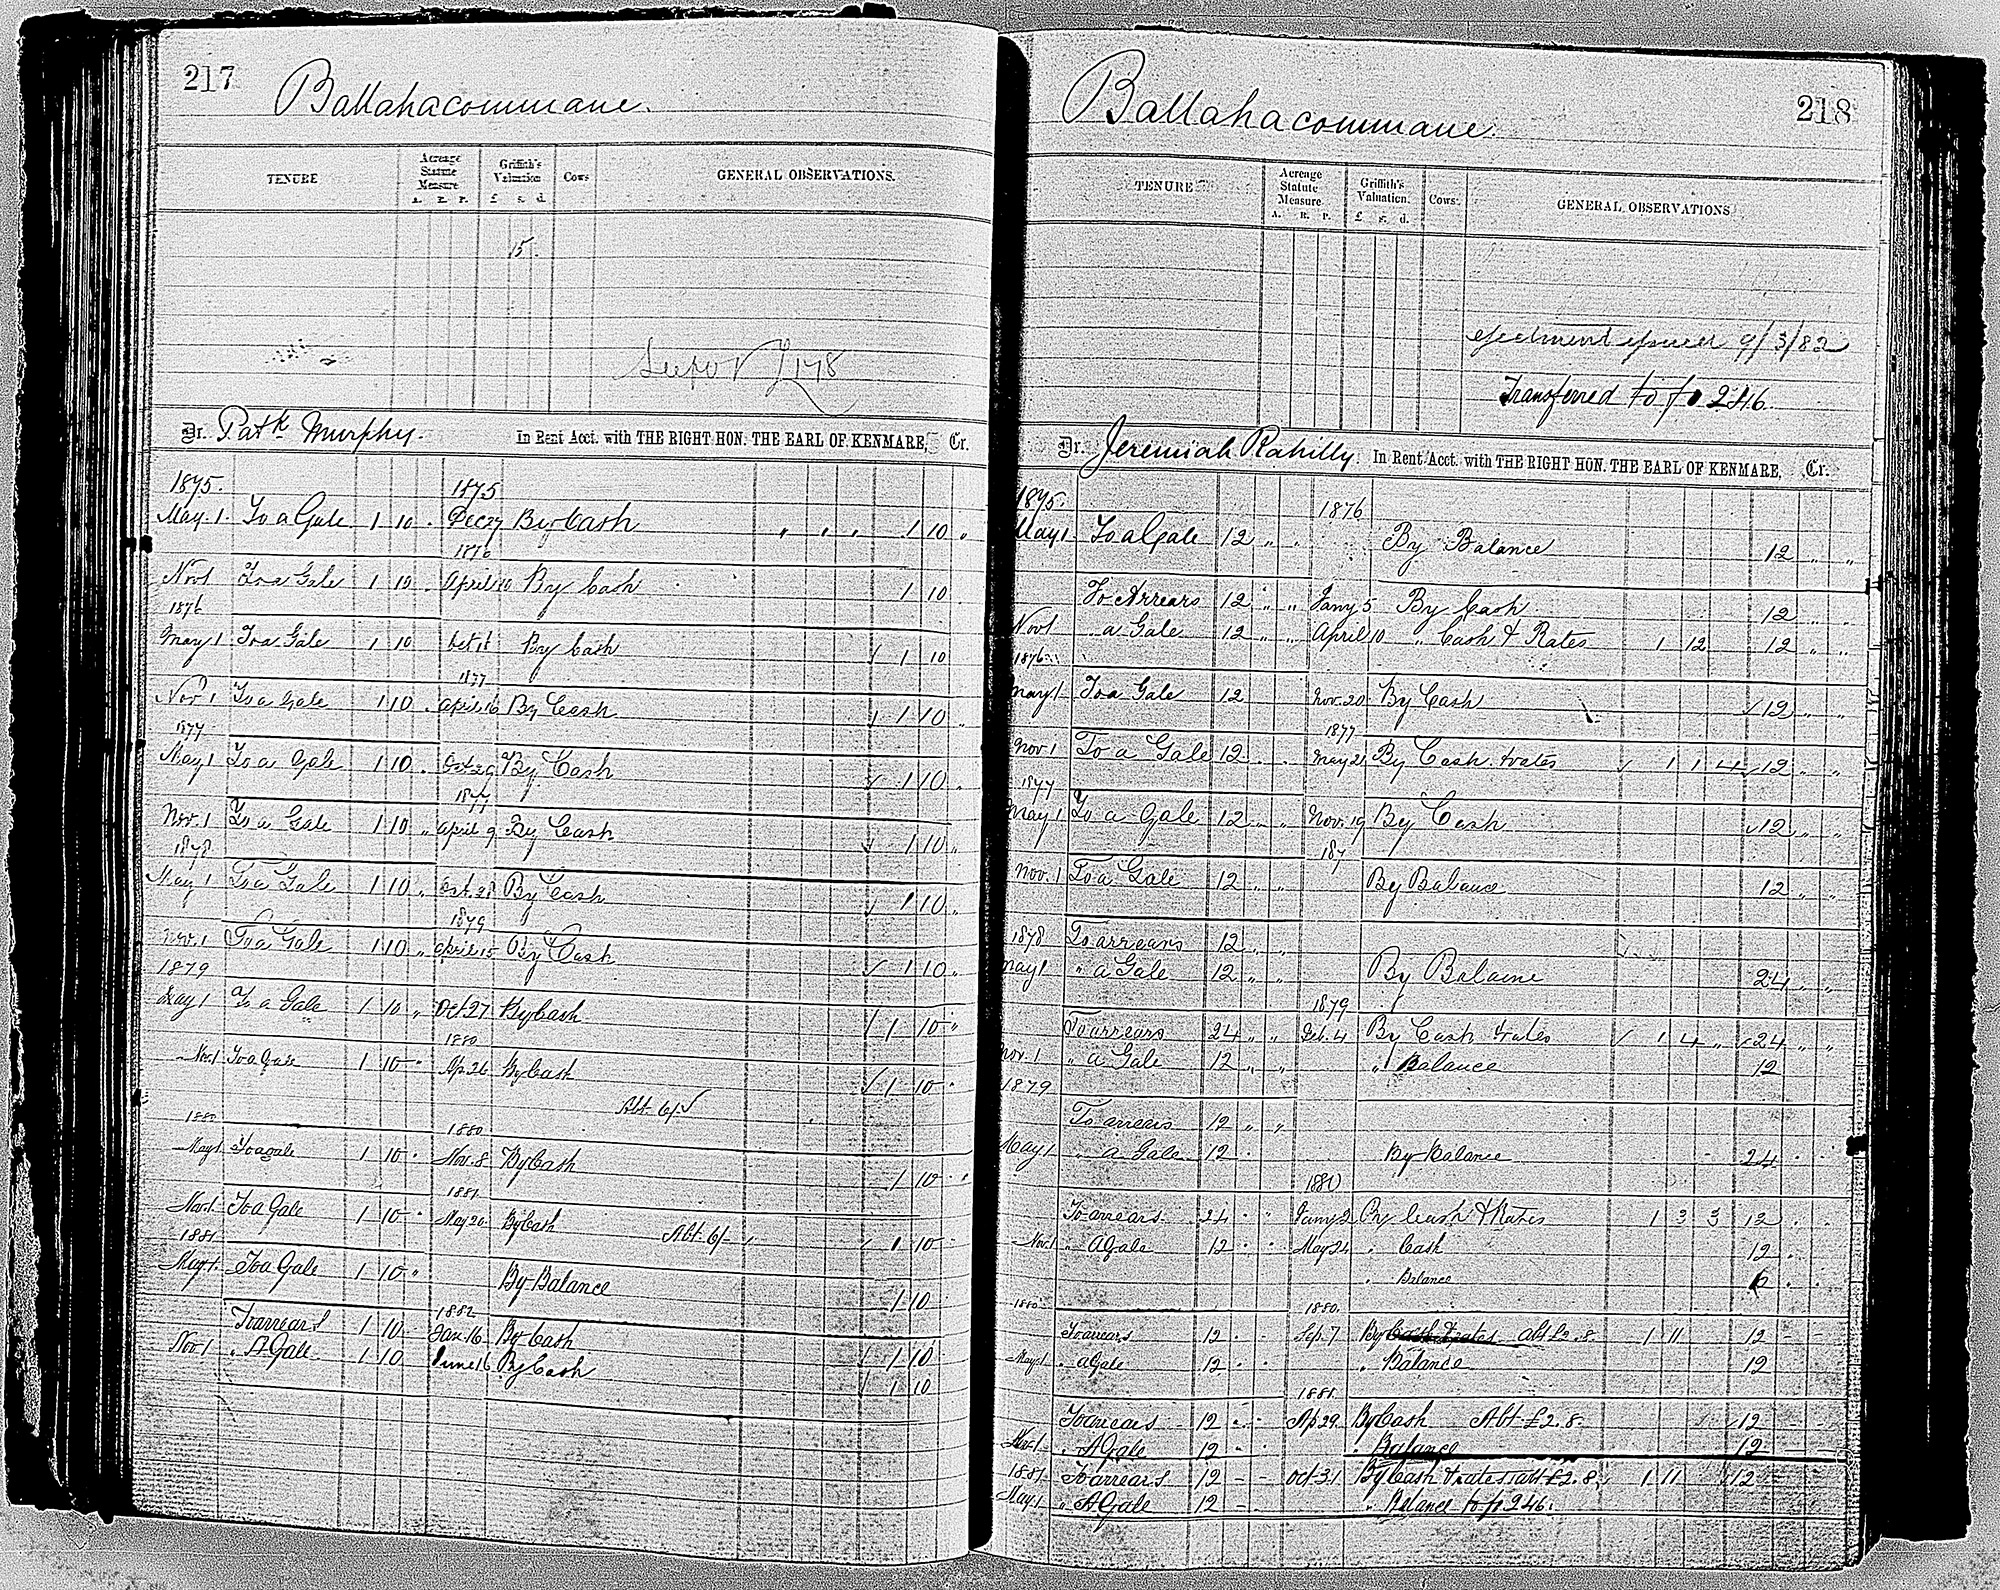 217
Ballahacommane.
TENURE
Acreage Statute Measure A. R. P.
Griffith's Valuation £ s. d.
Cows
GENERAL OBSERVATIONS.
15.
178
Dr. Patk Murphy. In Rent Acct. with THE RIGHT HON. THE EARL OF KENMARE, Cr.
1875. 1875
May. 1. To a Gale 1 10 . Dec 27 By Cash " " " 1 10 "
1876
Nov 1 To a Gale 1 10 . April 10 By Cash 1 10 .
1876
May 1 To a Gale 1 10 Oct 18 By Cash ✓ 1 10
1877
Nov 1 To a Gale 1 10 . April 16 By Cash ✓ 1 10 "
1877
May 1 To a Gale 1 10 . Oct 29 By Cash ✓ 1 10 "
1877
Nov. 1 To a Gale 1 10 " April 9 By Cash ✓ 1 10 "
1878
May 1 To a Gale 1 10 " Oct. 28 By Cash ✓ 1 10 "
1879
Nov. 1 To a Gale 1 10 " April 15 By Cash ✓ 1 10 "
1879
May 1 To a Gale 1 10 " Oct 27 By Cash ✓ 1 10 "
1880
Nov. 1 To a Gale 1 10 " Ap. 26 By Cash ✓ 1 10 "
Abt. 6/ ✓
1880 1880
May 1 To a gale 1 10 " Nov. 8 By Cash 1 10 "
1881
Nov. 1. To a Gale 1 10 " May 20 By Cash Abt 6/- ✓ 1 10
1881
May 1. To a Gale 1 10 " By Balance 1 10
1882
To arrears 1 10 Jan. 16 By Cash ✓ 1 10
Nov. 1 " A Gale 1 10 June 16 By Cash ✓ 1 10
218
Ballahacommane
TENURE
Acreage Statute Measure A. R. P.
Griffith's Valuation. £ s. d.
Cows.
GENERAL OBSERVATIONS
Ejectment issued 9/3/82
Transferred to fo 246.
Dr. Jeremiah Rahilly In Rent Acct. with THE RIGHT HON. THE EARL OF KENMARE, Cr.
1875. 1876
May 1 To a Gale 12 " " By Balance 12 " "
To Arrears 12 " " Jany 5 By Cash 12 " "
Nov 1 " a Gale 12 " " April 10 " Cash & Rates 1 12 12 " "
1876
May 1 To a Gale 12 Nov. 20 By Cash ✓ 12 " "
1877
Nov 1 To a Gale 12 . . May 21 By Cash & rates ✓ 1 1 4 ✓ 12 " "
1877
May 1 To a Gale 12 " " Nov. 19 By Cash ✓ 12 " "
187
Nov. 1 To a Gale 12 " " By Balance 12 " "
1878 To arrears 12 " "
May 1 " a Gale 12 " " By Balance 24 " "
1879
To arrears 24 " " Feb. 4 By Cash & rates ✓ 1 4 " ✓ 24 " "
Nov. 1 " a Gale 12 " " " Balance 12
1879
To arrears 12 " "
May 1 " a Gale 12 " By Balance 24 . .
1880
To arrears 24 " " Jany 2 By Cash & Rates 1 3 3 12 . .
Nov. 1 " A Gale 12 " " May 24 " Cash 12 .
" Balance
1880 1880
To arrears 12 " " Sep. 7 By Cash & rates abt £2.8. 1 11 12 - -
May 1 " a Gale 12 " " " Balance 12
1881
To arrears 12 - - Ap 29. By Cash Abt £2.8. ✓ 12
Nov. 1 " A Gale 12 " " " Balance 12
1881 To arrears 12 - - Oct. 31 By Cash & rates abt £2.8. 1 11 12 -
May. 1 " A Gale 12 - - " Balance to fo 246.